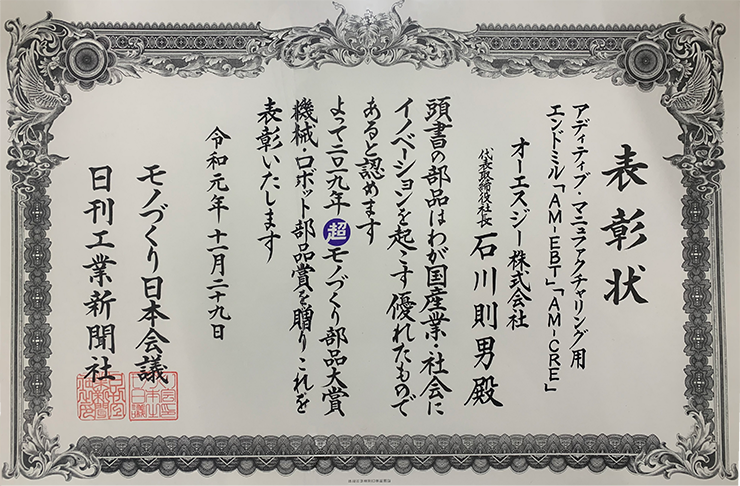 表彰状
アディティブ・マニュファクチャリング用
エンドミル「AM-EBT」「AM-CRE」
オーエスジー株式会社
代表取締役社長 石川則男 殿
頭書の部品はわが国産業・社会に
イノベーションを起こす優れたもので
あると認めます
よって二〇一九年 超モノづくり部品大賞
機械・ロボット部品賞を贈りこれを
表彰いたします
令和元年 十一月二十九日
モノづくり日本会議
日刊工業新聞社